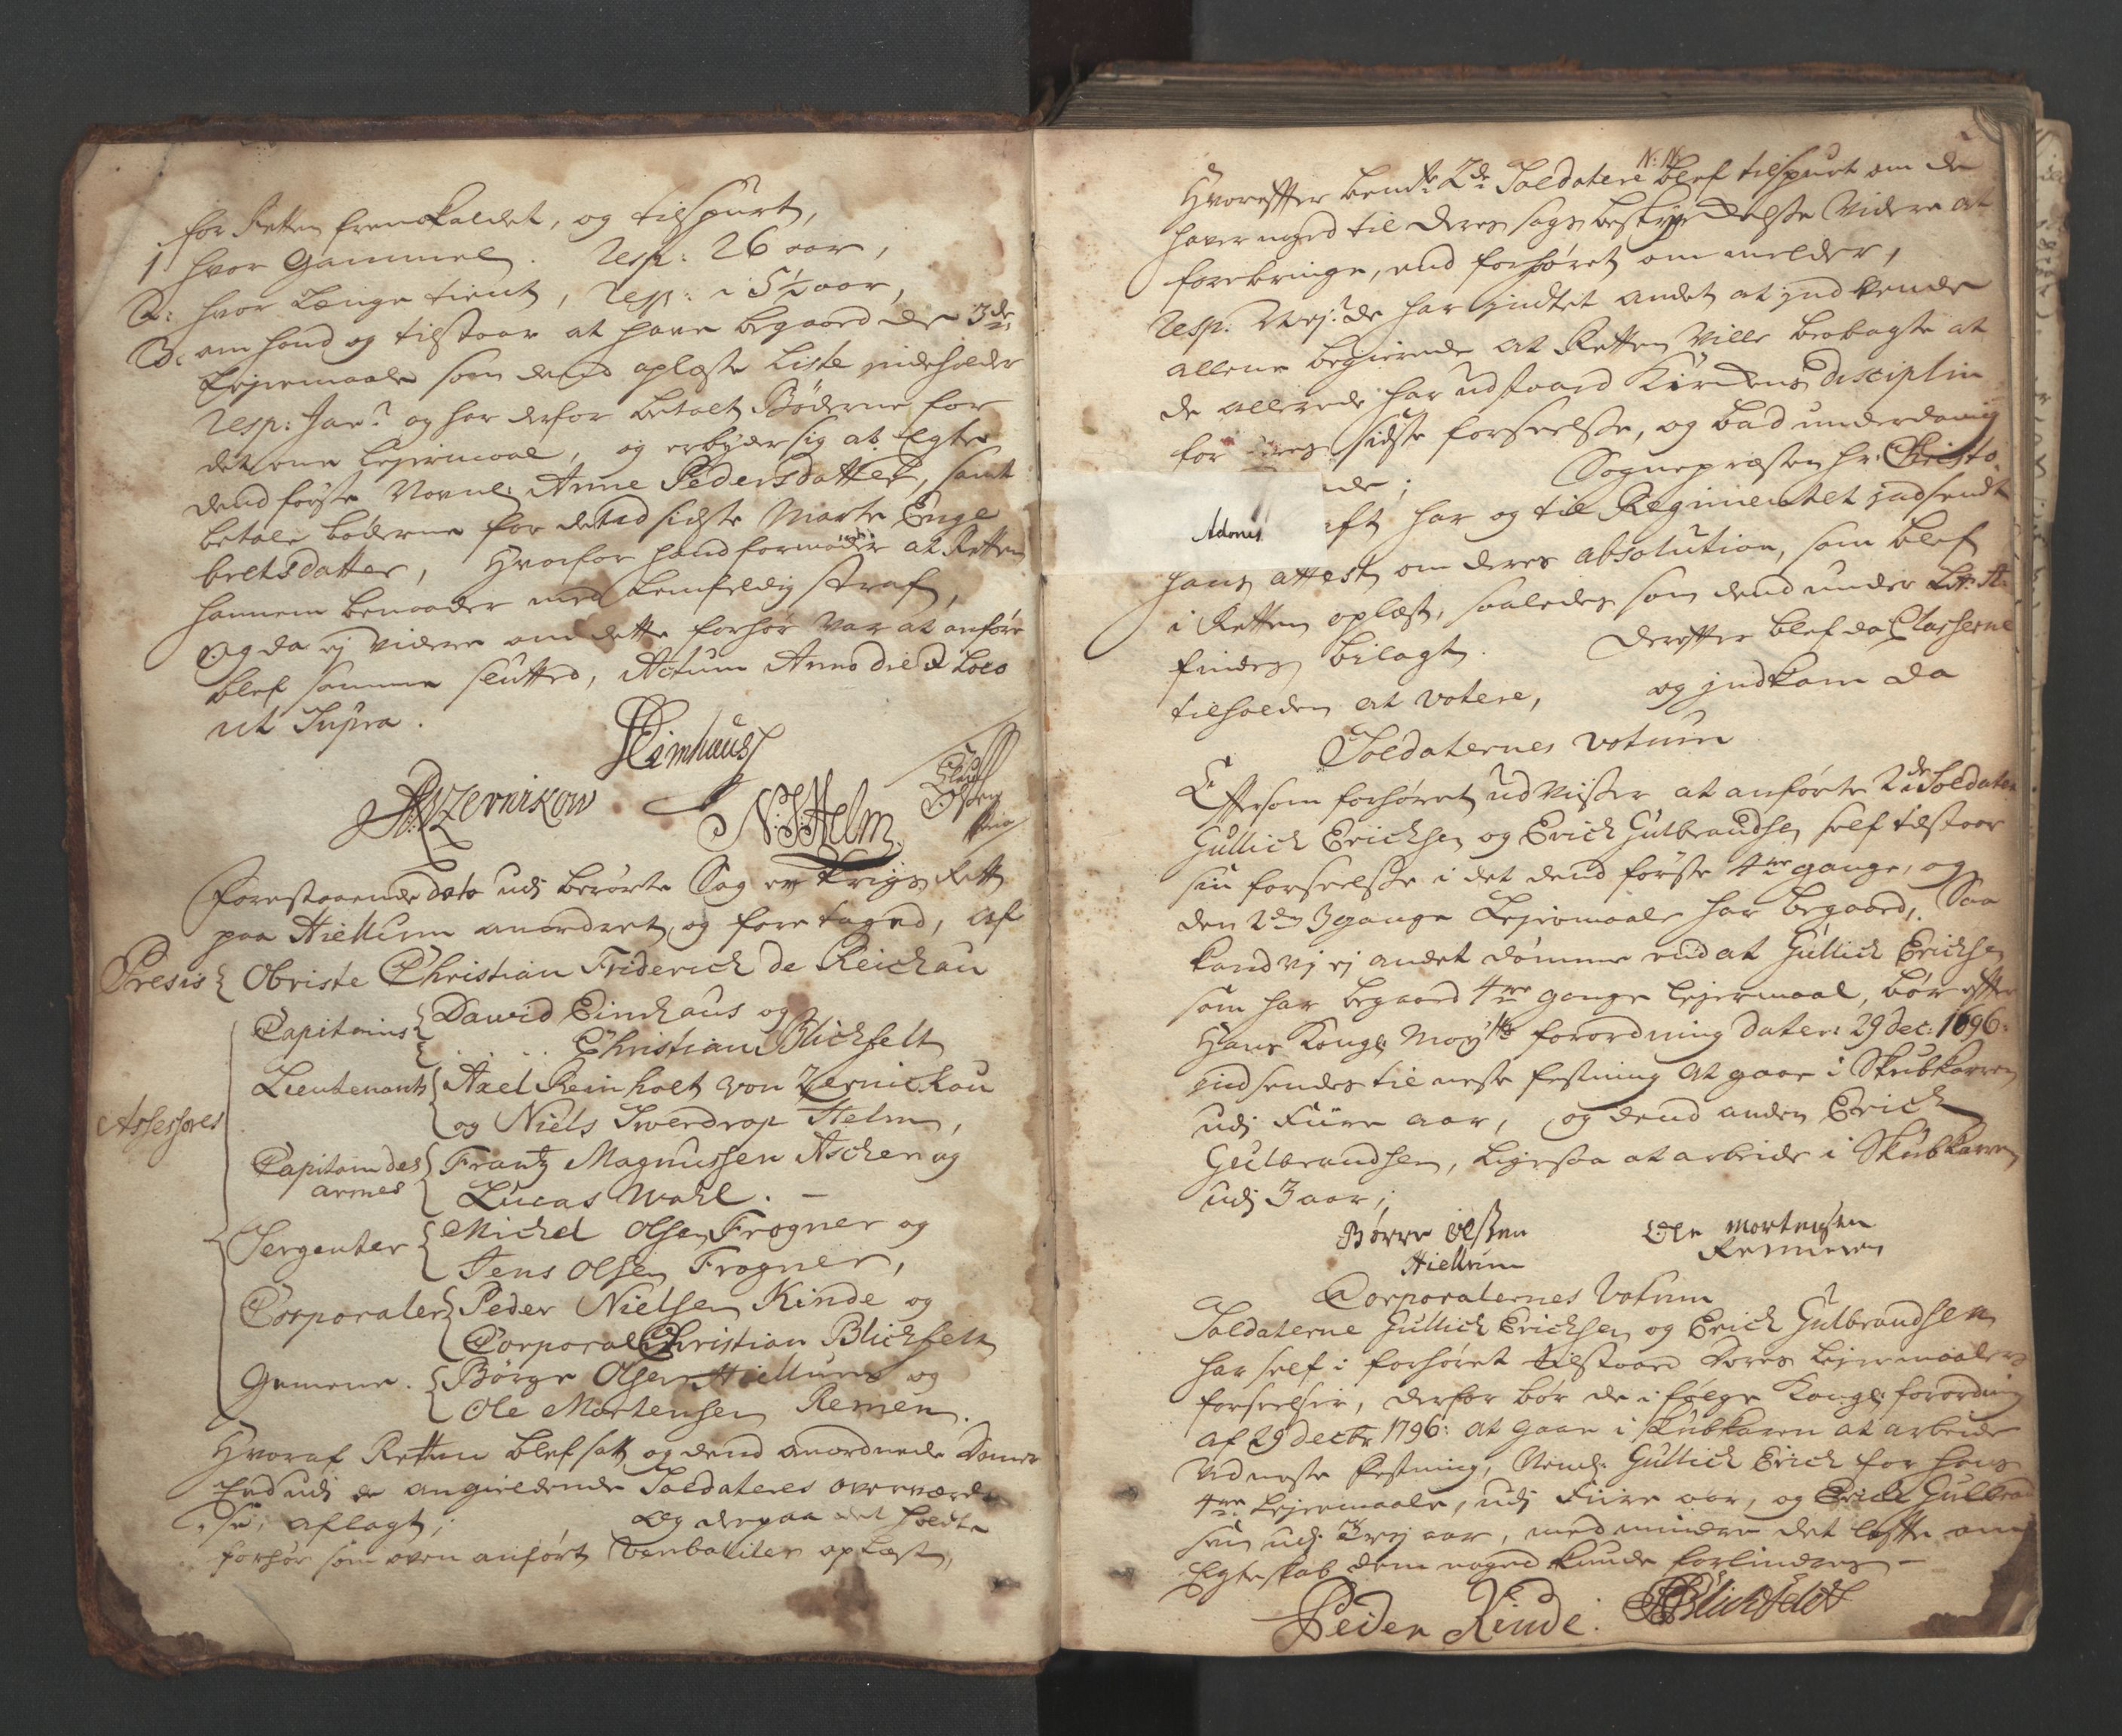 for Retten fremkaldet, og tilspurt,
1 hvor Gammel. Resp: 26 aar,
2: hvor Længe tient, Resp: i 5½ aar,
3: om hand og tilstaar at have begaaed de 3de
Lejermaale som dend oplæste Liste indeholder
Resp: Ja. og har derfor betalt Bøderne for
det ene Lejermaal, og erbyder sig at Egte
dend første Navnl: Anne Pedersdatter, samt
betale bøderne for det sidste Marte Enge
bretsdatter, Hvorfor hand formoder at Retten
hannem benaader med Lemfeldig straf,
Og da ej videre om dette forhør var at anføre
blef samme slutted, Actum Anno die & Loco
ut Supra.
DEimhaus
ARVZernikow N:S:Helm
Forestaaende dato udj berørte Sag er Krigs Rett
paa Hiellum anordnet, og foretaged, af
Presis Obriste Christian Friderich de Reichau
Assessores
Capitains David Eimhaus og
Christian Blichfelt
Lieutenants Axel Reinholt von Zernichau
og Niels Swerdrop Helm,
Capitain des armes Frantz Magnussen Ascher og
Lucas Wahl. –
Sergenter Michel Olsen Frogner og
Jens Olsen Frogner,
Corporaler Peder Nielsen Kinde og
Corporal Christian Blichfelt
Gemene. Børge Olsen Hiellum og
Ole Mortensen Remen.
Hvoraf Retten blef satt, og dend anordnede Domer
Eed udj de angieldende Soldaters overværel
se, aflagt; Og derpaa det holdte
forhør som oven anført verbaliter oplæst,
N: N:
Hvorefter bemte 2de Soldatere blef tilspurt om de
haver noged til deres sags bestyrkelse videre at
forebringe, end forhøret om melder,
Resp. Nej: de har indtet andet at indvende
allene begierede at Retten ville beobagte at
de allerede har udstaaed Kirkens disciplin
for deres sidste forseelse, og bad underdanig
Sognepræsten Hr: Christo
Adones
aft har og til Regimentet indsendt
hans attest om deres absolution, som blef
i Retten oplæst, saaledes som dend under Litr: A:
findes bilagt. Derefter blef da Classerne
tilholden at votere, og indkom da
Soldaternes votum
Eftersom forhøret udviser at anførte 2de Soldater
Gullich Erichsen og Erich Gulbrandsen self tilstaar
sin forseelse i det dend første 4re gange, og
den 2den 3 gange Lejermaale har begaaed, Saa
kand vj ej andet dømme end at Gullich Erichsen
som har begaaed 4re gange lejermaal, bør efter
Hans Kongl: Maytts forordning dater: 29 dec: 1696:
indsendes til neste festning at gaae i Skubkarren
udj Fiire aar, og dend anden Erich
Gulbrandsen, ligesaa at arbeide i Skubkarren
udj 3 aar;
Børre Olsen Ole Mortensen
Hiellum Remmen
Corporalernes Votum
Soldaterne Gullich Erichsen og Erich Gulbrandsen
har self i forhøret tilstaaed deres Lejermaales
forseelser, derfor bør de i følge Kongl: forordning
af 29 decbr 1796: at gaae i Skubkaren at arbeide
ved neste festning, Neml: Gullich Erich for hans
4re Lejermaale, udj Fiire aar, og Erich Gulbrand
sen udj 3 aar, med mindre det løfte om
Egteskab dem noged kunde forlindres –
Peder Kinde. CBlichfeldt